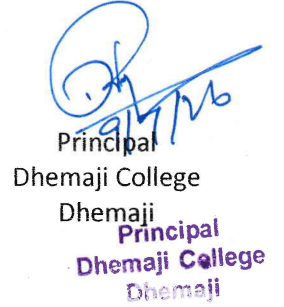 Principal
Dhemaji College
Dhemaji
Principal
Dhemaji College
Dhemaji